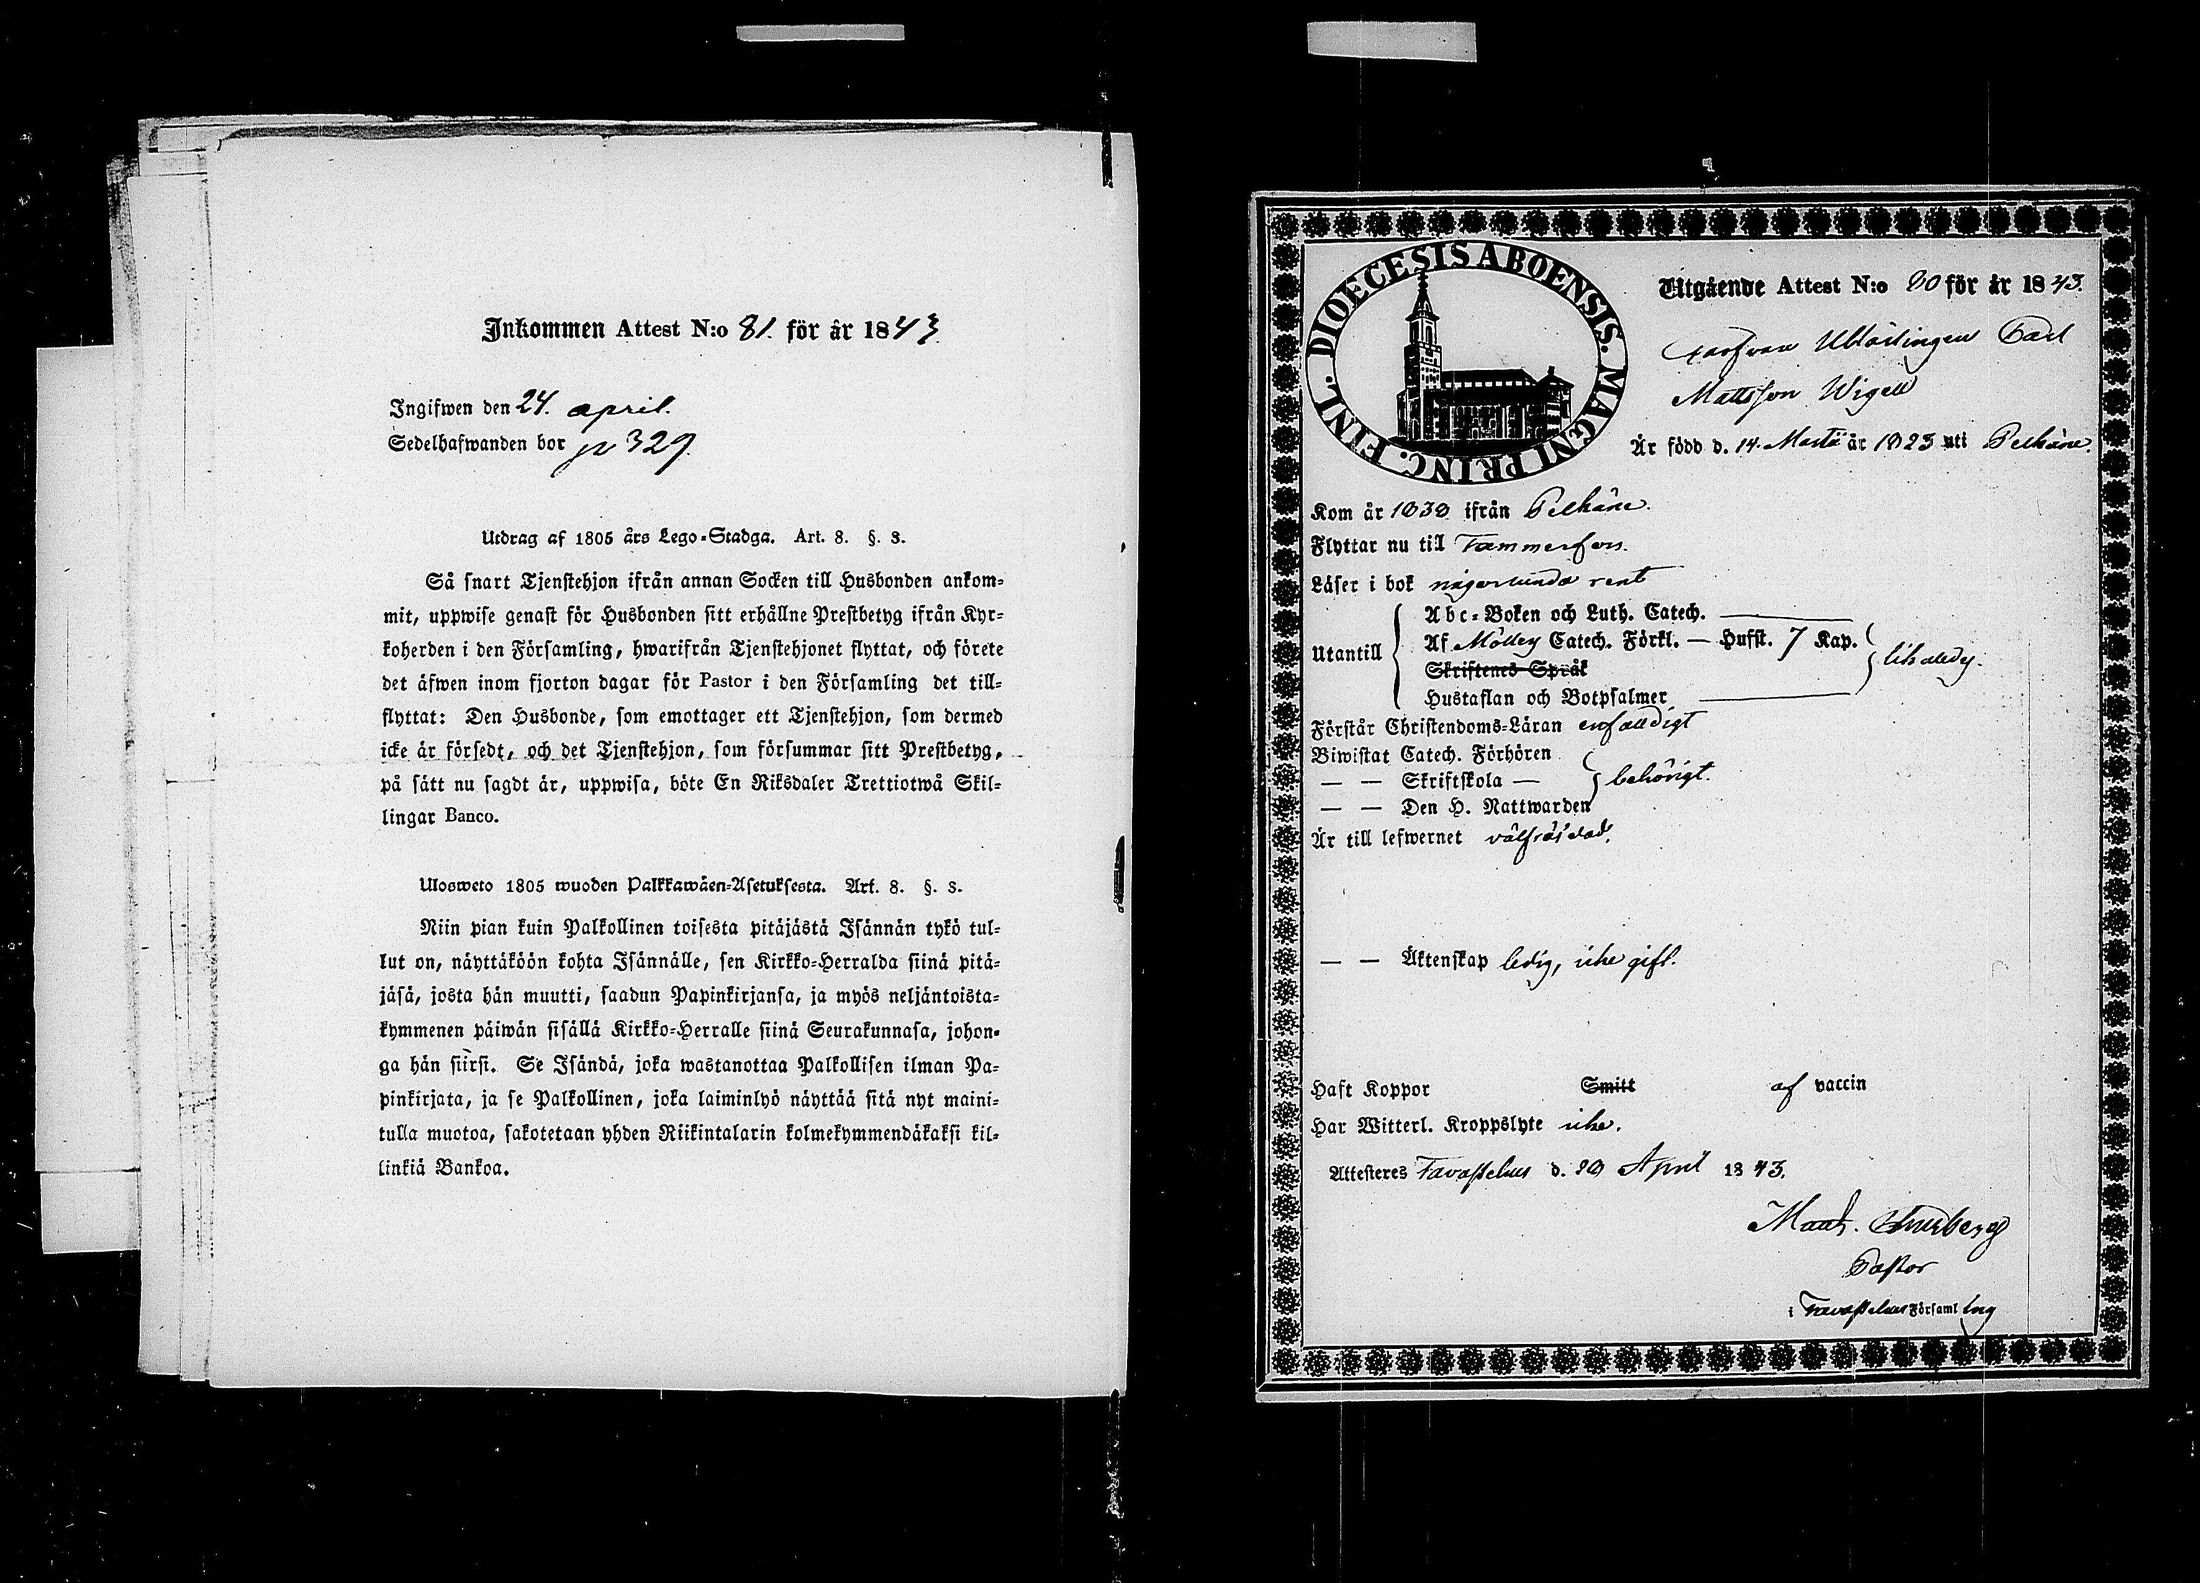 Inkommen Attest N:o 81. för år 1843
Ingifwen den 24. april.
Sedelhafwanden bor p 329.
Utdrag af 1805 års Lego-Stadga. Art. 8. §. 3.
Så snart Tjenstehjon ifrån annan Socken till Husbonden ankom-
mit, uppwise genast för Husbonden sitt erhållne Prestbetyg ifrån Kyr-
koherden i den Församling, hwarifrån Tjenstehjonet flyttat, och förete
det äfwen inom fjorton dagar för Pastor i den Församling det till-
flyttat: Den Husbonde, som emottager ett Tjenstehjon, som dermed
icke är försedt, och det Tjenstehjon, som försummar sitt Prestbetyg,
på sätt nu sagdt är, uppwisa, böte En Riksdaler Trettiotwå Skil-
lingar Banco.
Ulosweto 1805 wuoden Palkkawäen-Asetuksesta. Art. 8. §. 3.
Niin pian kuin Palkollinen toisesta pitäjästä Isännän tykö tul-
lut on, näyttäköön kohta Isännälle, sen Kirkko-Herralda siinä pitä-
jäsä, josta hän muutti, saadun Papinkirjansa, ja myös neljäntoista-
kymmenen päiwän sisällä Kirkko-Herralle siinä Seurakunnasa, johon-
ga hän siirsi. Se Isändä, joka wastanottaa Palkollisen ilman Pa-
pinkirjata, ja se Palkollinen, joka laiminlyö näyttää sitä nyt maini-
tulla muotoa, sakotetaan yhden Riikintalarin kolmekymmendäkaksi kil-
linkiä Bankoa.
DIOECESIS ABOENSIS. MAGNI PRINC. FINL.
Utgående Attest N:o 20 för år 1843.
Carl
Mattsson Wigell
Är född d. 14. Martii år 1823 uti Pelkäne.
Kom år 1838 ifrån Pelkäne.
Flyttar nu till Tammerfors.
Läser i bok någorlunda rent
Utantill
Abc-Boken och Luth. Catech.
Af Möllers Catech. Förkl. — Hufst. 7 Kap.
Skriftenes Språk
likaledes.
Hustaflan och Botpsalmer
Förstår Christendoms-Läran enfaldigt
Biwistat Catech. Förhören
— — Skriftskola —
behörigt.
— — Den H. Nattwarden
Är till lefwernet välfrejdad.
— — Äktenskap ledig, icke gift.
Haft Koppor Smitt af vaccin
Har Witterl. Kroppslyte icke.
Attesteres Tavastehus d. 20 April 1843.
Pastor
i Tavastehus Församling